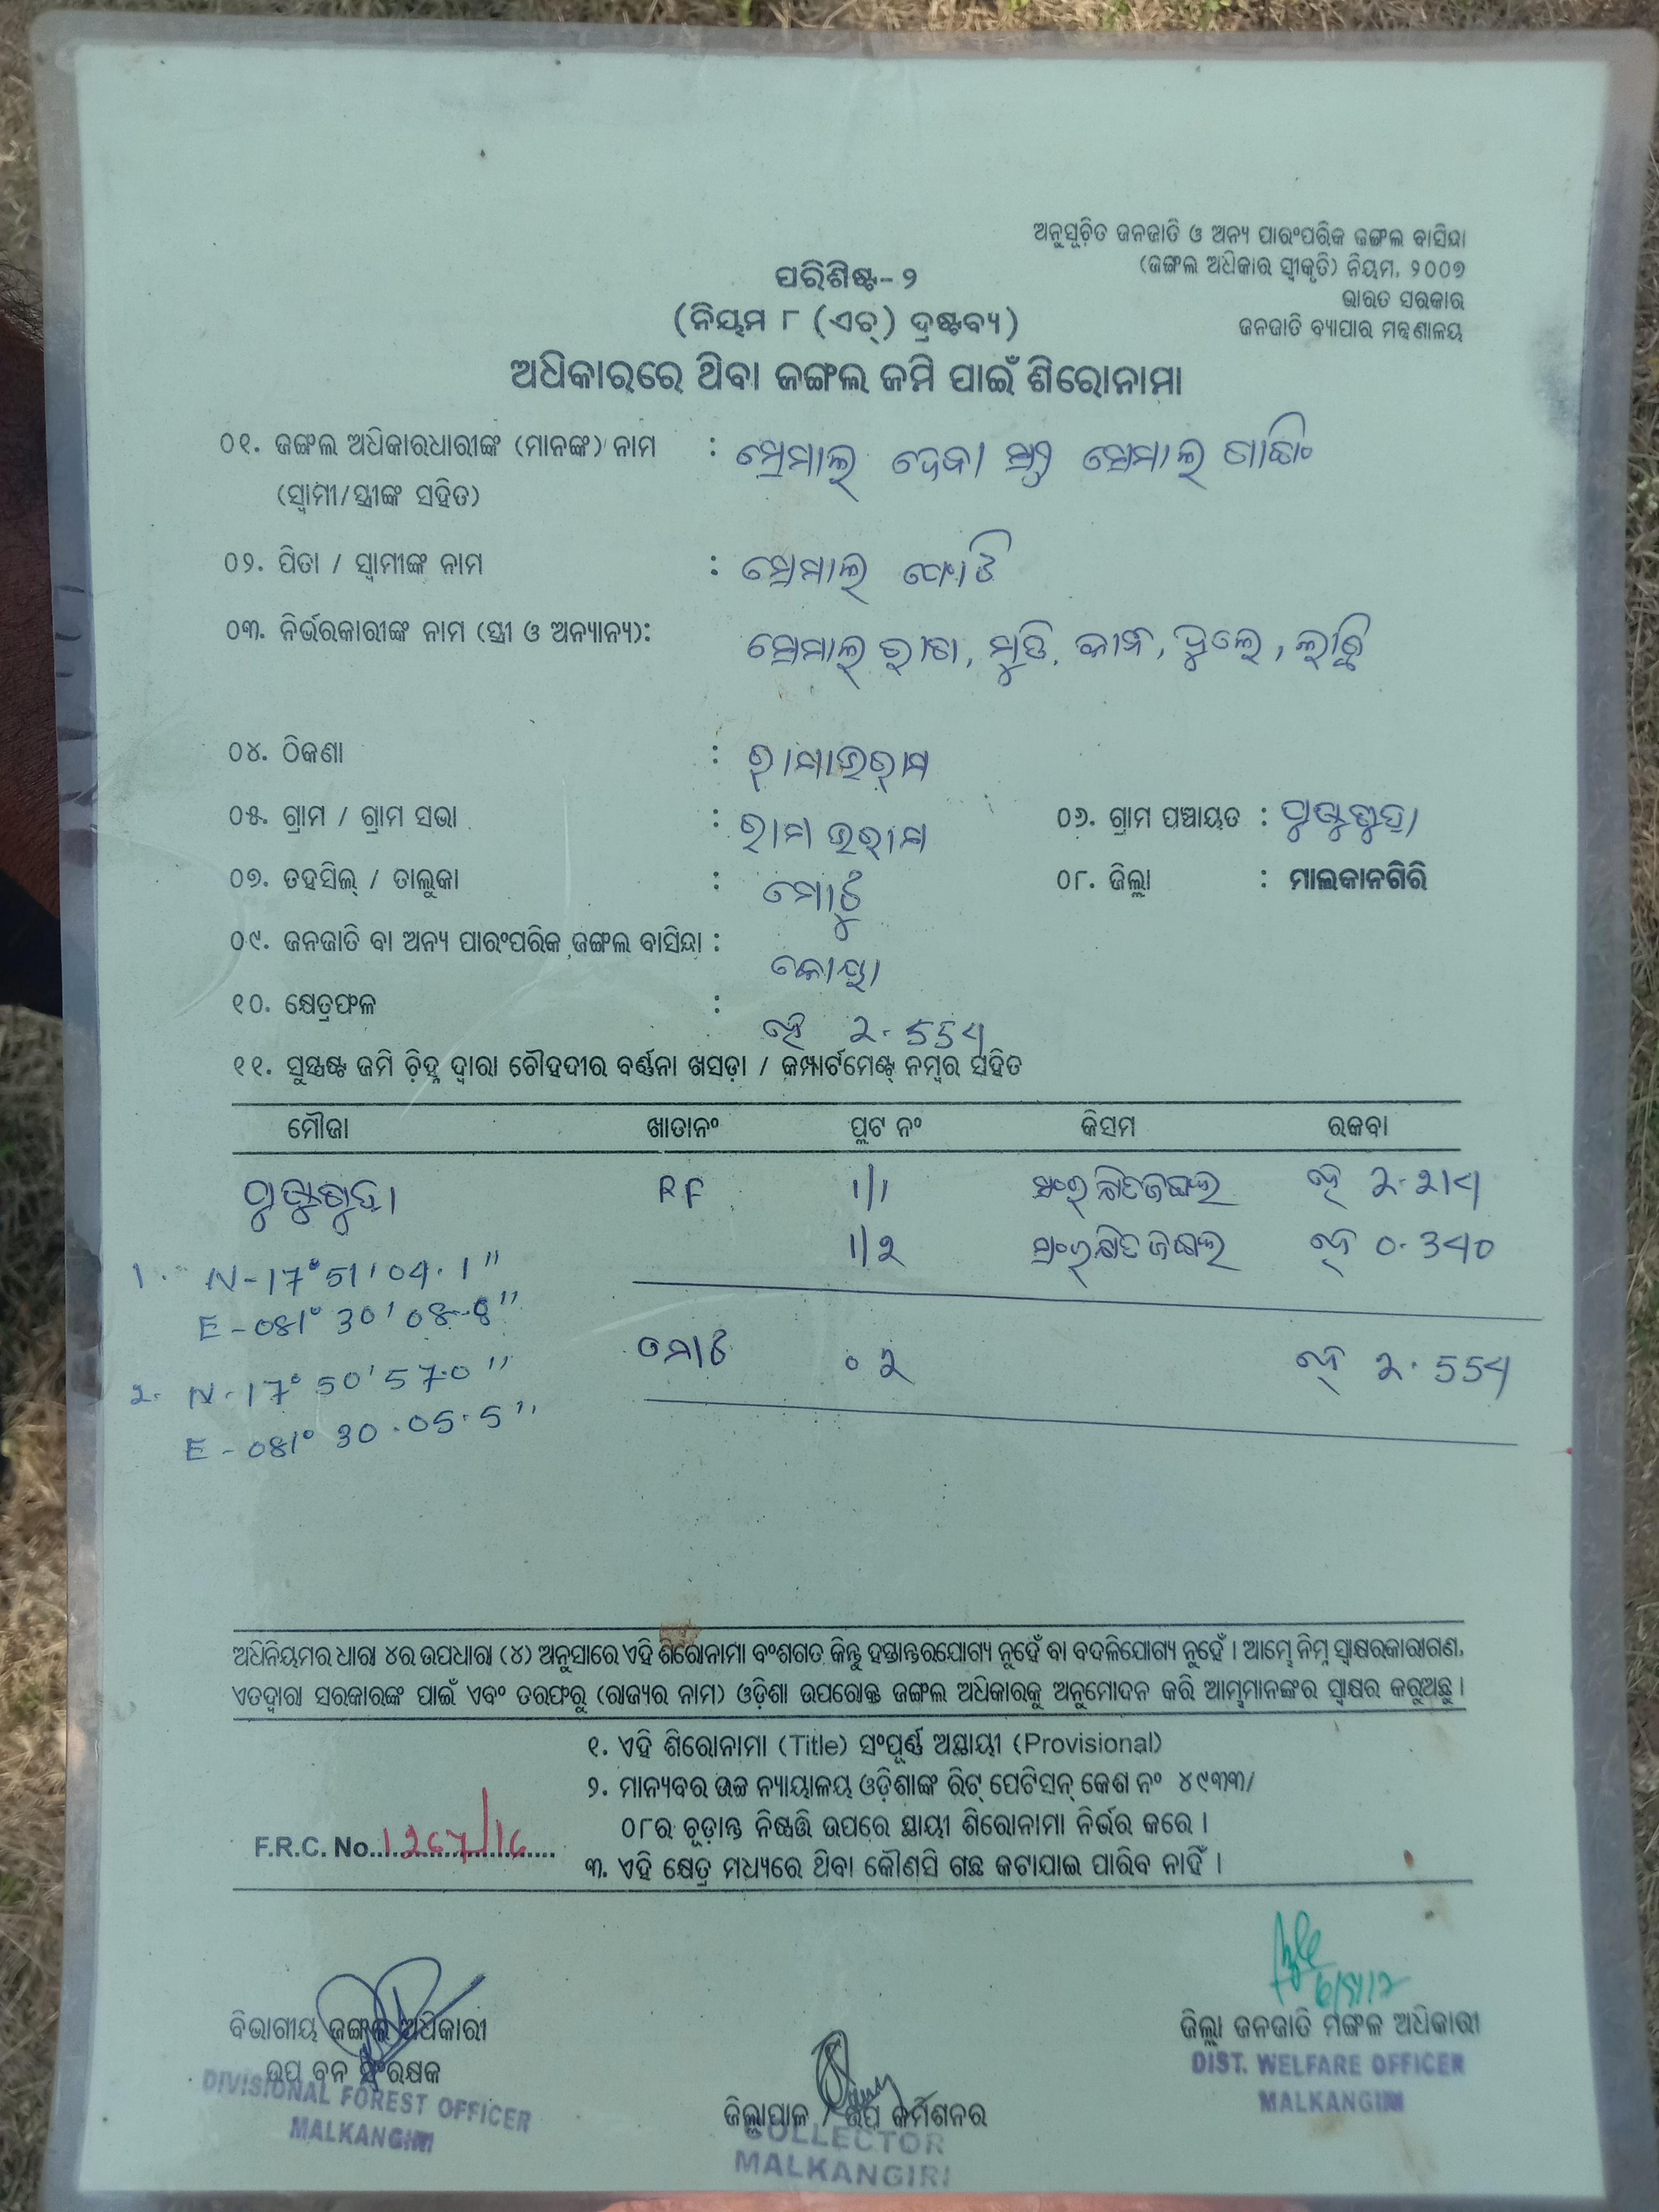 ଅନୁସୂଚିତ ଜନଜାତି ଓ ଅନ୍ୟ ପାରଂପରିକ ଜଙ୍ଗଲ ବାସିନ୍ଦା
(ଜଙ୍ଗଲ ଅଧିକାର ସ୍ୱୀକୃତି) ନିୟମ, ୨୦୦୭
ଭାରତ ସରକାର
ଜନଜାତି ବ୍ୟାପାର ମନ୍ତ୍ରଣାଳୟ
ପରିଶିଷ୍ଟ-୨
(ନିୟମ ୮ (ଏଚ୍) ଦ୍ରଷ୍ଟବ୍ୟ)
ଅଧିକାରରେ ଥିବା ଜଙ୍ଗଲ ଜମି ପାଇଁ ଶିରୋନାମା
୦୧. ଜଙ୍ଗଲ ଅଧିକାରଧାରୀଙ୍କ (ମାନଙ୍କ) ନାମ :
(ସ୍ୱାମୀ/ସ୍ତ୍ରୀଙ୍କ ସହିତ)
୦୨. ପିତା / ସ୍ୱାମୀଙ୍କ ନାମ :
୦୩. ନିର୍ଭରକାରୀଙ୍କ ନାମ (ସ୍ତ୍ରୀ ଓ ଅନ୍ୟାନ୍ୟ):
୦୪. ଠିକଣା :
୦୫. ଗ୍ରାମ / ଗ୍ରାମ ସଭା : ୦୬. ଗ୍ରାମ ପଞ୍ଚାୟତ :
୦୭. ତହସିଲ୍ / ତାଲୁକା : ମୋଟୁ ୦୮. ଜିଲ୍ଲା : ମାଲକାନଗିରି
୦୯. ଜନଜାତି ବା ଅନ୍ୟ ପାରଂପରିକ ଜଙ୍ଗଲ ବାସିନ୍ଦା : କୋୟା
୧୦. କ୍ଷେତ୍ରଫଳ : ହେ 2.554
୧୧. ସୁସ୍ପଷ୍ଟ ଜମି ଚିହ୍ନ ଦ୍ୱାରା ଚୌହଦୀର ବର୍ଣ୍ଣନା ଖସଡ଼ା / କମ୍ପାର୍ଟମେଣ୍ଟ୍ ନମ୍ବର ସହିତ
ମୌଜା ଖାତାନଂ ପ୍ଲଟ ନଂ କିସମ ରକବା
RF 1/1 ସଂରକ୍ଷିତ ଜଙ୍ଗଲ ହେ 2.214
1/2 ସଂରକ୍ଷିତ ଜଙ୍ଗଲ ହେ 0.340
1. N-17°51'04.1"
E-081°30'08.8"
ମୋଟ 02 ହେ 2.554
2. N-17°50'57.0"
E-081°30.05.5"
ଅଧିନିୟମର ଧାରା ୪ର ଉପଧାରା (୪) ଅନୁସାରେ ଏହି ଶିରୋନାମା ବଂଶଗତ କିନ୍ତୁ ହସ୍ତାନ୍ତରଯୋଗ୍ୟ ନୁହେଁ ବା ବଦଳିଯୋଗ୍ୟ ନୁହେଁ । ଆମ୍ଭେ ନିମ୍ନ ସ୍ୱାକ୍ଷରକାରୀଗଣ,
ଏତଦ୍ୱାରା ସରକାରଙ୍କ ପାଇଁ ଏବଂ ତରଫରୁ (ରାଜ୍ୟର ନାମ) ଓଡ଼ିଶା ଉପରୋକ୍ତ ଜଙ୍ଗଲ ଅଧିକାରକୁ ଅନୁମୋଦନ କରି ଆମ୍ଭମାନଙ୍କର ସ୍ୱାକ୍ଷର କରୁଅଛୁ ।
୧. ଏହି ଶିରୋନାମା (Title) ସଂପୂର୍ଣ୍ଣ ଅସ୍ଥାୟୀ (Provisional)
୨. ମାନ୍ୟବର ଉଚ୍ଚ ନ୍ୟାୟାଳୟ ଓଡ଼ିଶାଙ୍କ ରିଟ୍ ପେଟିସନ୍ କେଶ ନଂ ୪୯୩୩/
୦୮ର ଚୂଡ଼ାନ୍ତ ନିଷ୍ପତ୍ତି ଉପରେ ସ୍ଥାୟୀ ଶିରୋନାମା ନିର୍ଭର କରେ ।
F.R.C. No.
୩. ଏହି କ୍ଷେତ୍ର ମଧ୍ୟରେ ଥିବା କୌଣସି ଗଛ କଟାଯାଇ ପାରିବ ନାହିଁ ।
ବିଭାଗୀୟ ଜଙ୍ଗଲ ଅଧିକାରୀ
ଉପ ବନ ସଂରକ୍ଷକ
DIVISIONAL FOREST OFFICER
MALKANGIRI
ଜିଲ୍ଲାପାଳ / ଉପ କମିଶନର
COLLECTOR
MALKANGIRI
ଜିଲ୍ଲା ଜନଜାତି ମଙ୍ଗଳ ଅଧିକାରୀ
DIST. WELFARE OFFICER
MALKANGIRI